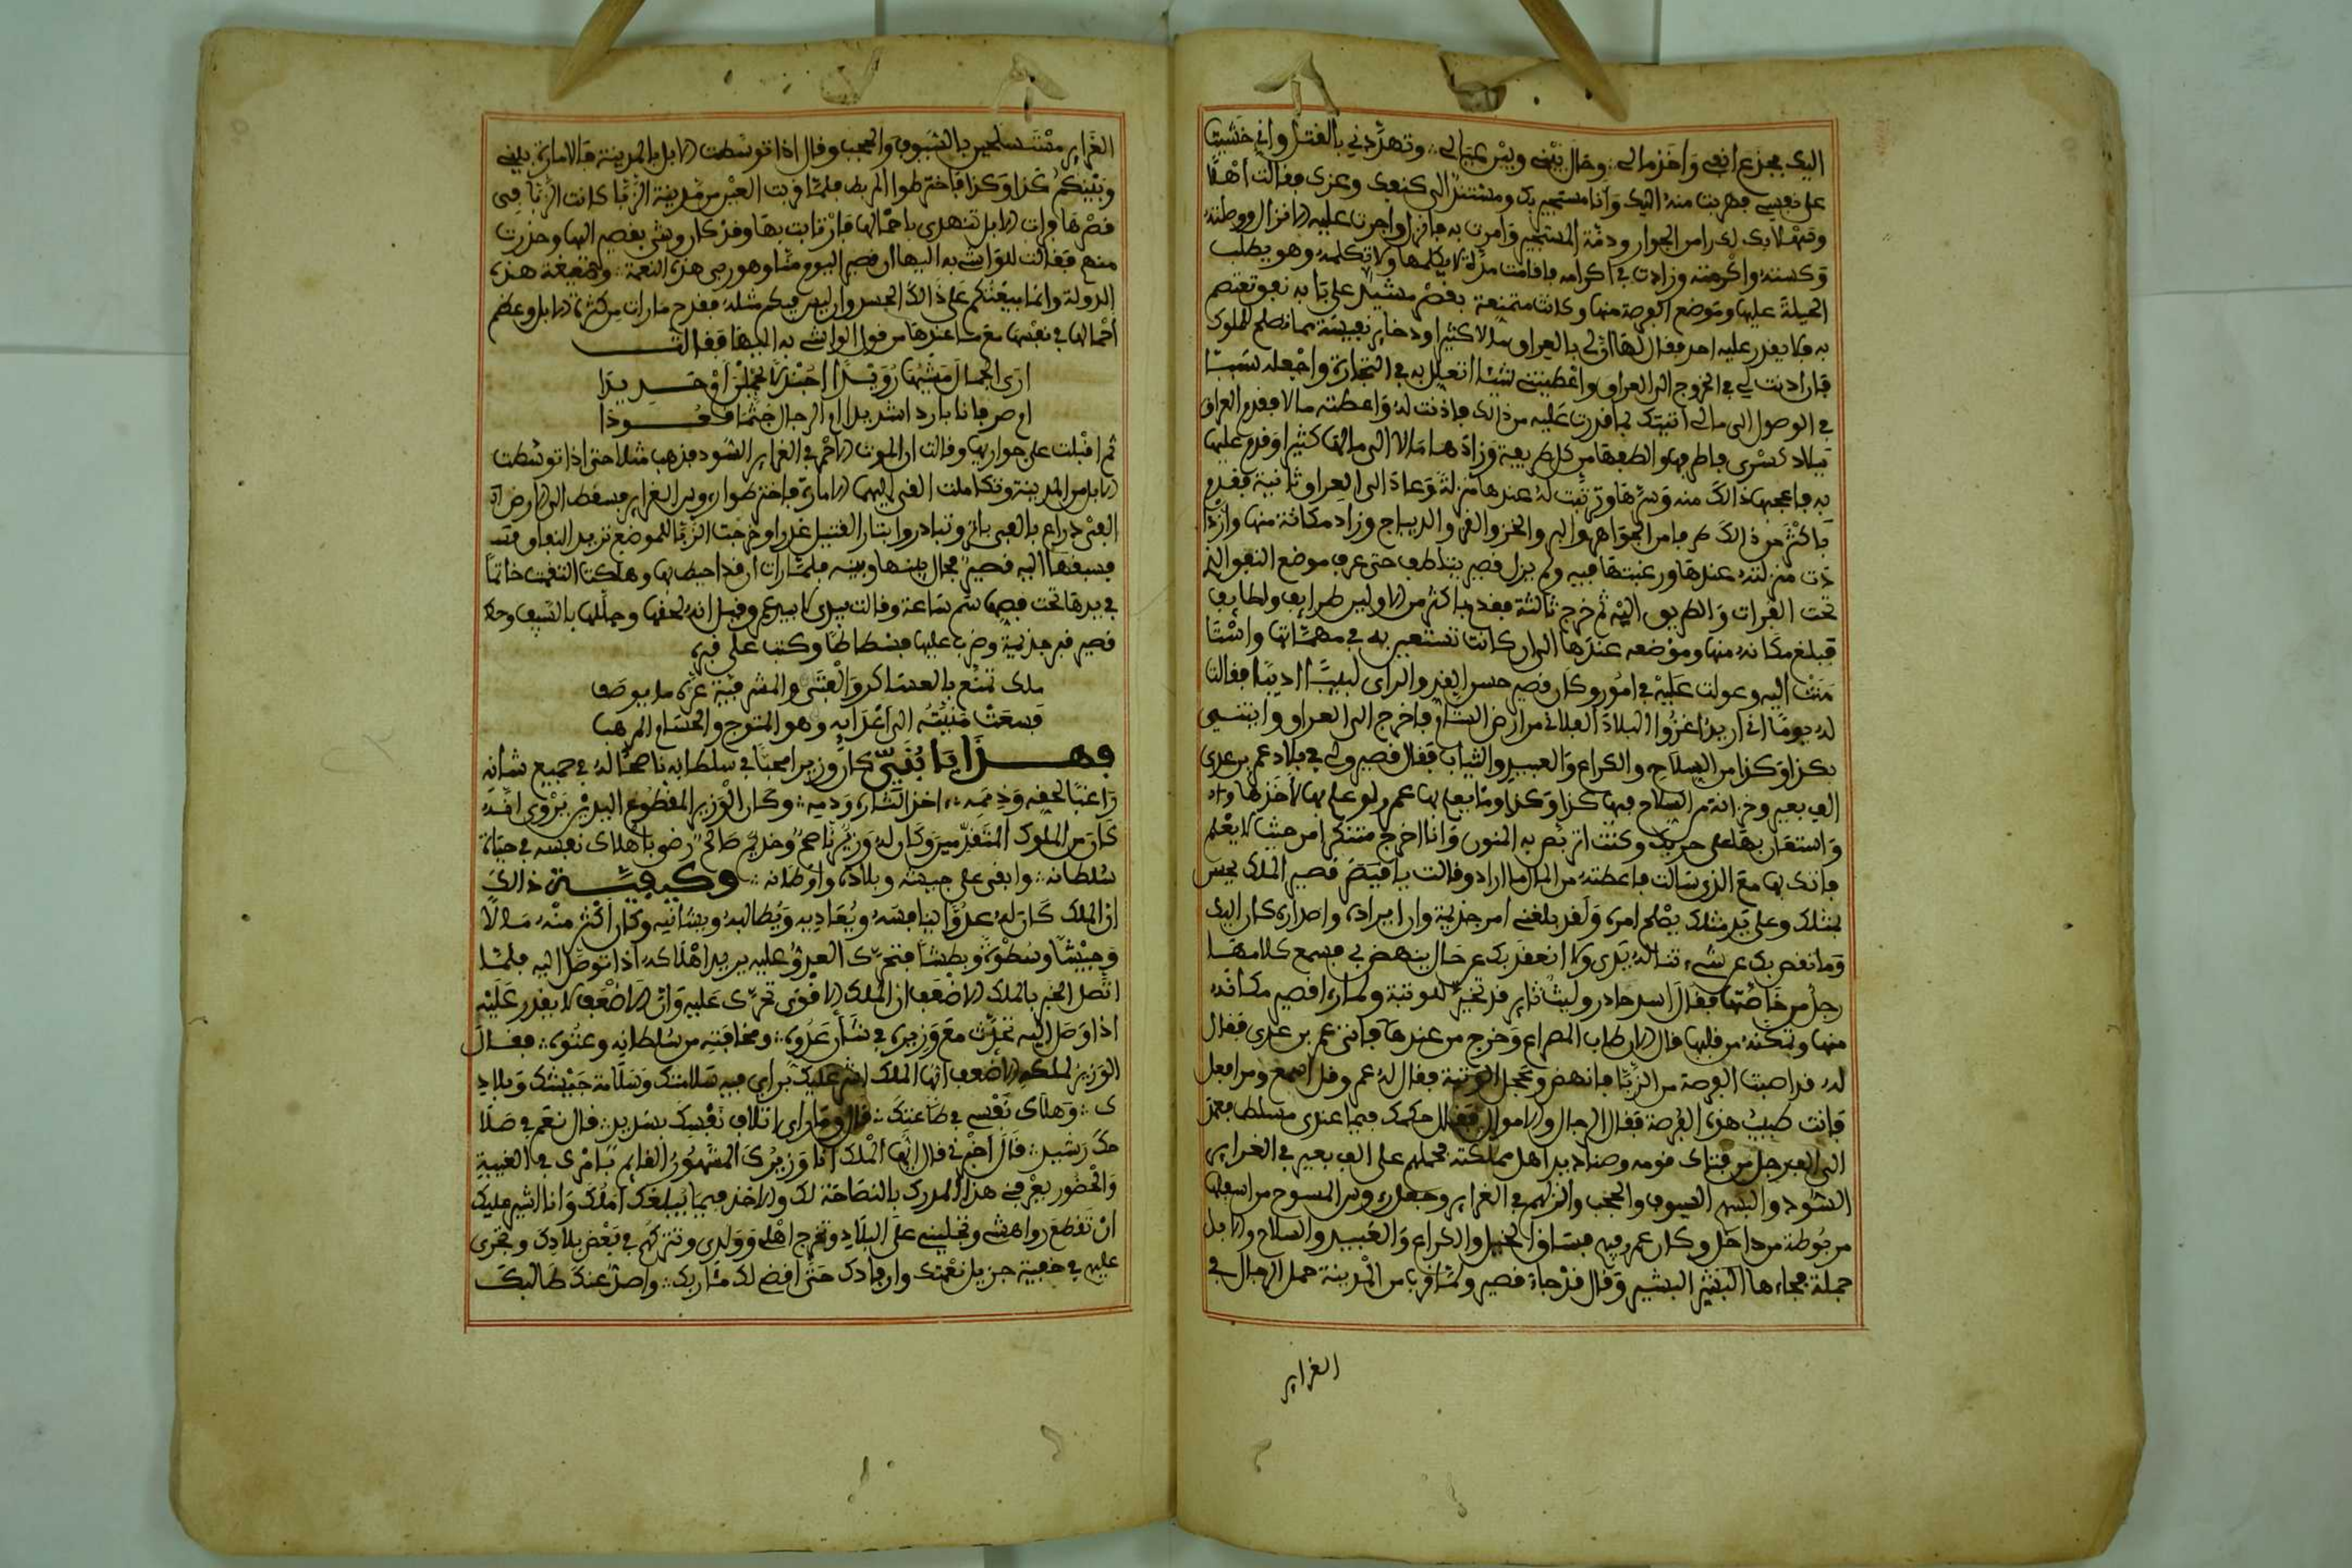 اليك فجزع انفي واخذ مالي وحال بيني وبين عيالي وتهددني بالقتل واني خشيت
على نفسي فهربت منه اليك وانا مستجير بك ومستند الى كنفك وعزك فقالت اهلا
وسهلا بك لك را من الجوار وذمة المستجير وامرت به فانزل واجرت عليه الانزال ووطنته
وكسته واكرمته وزادت في اكرامه فاقامت مدة لا يكلمها ولا تكلمه وهو يطلب
الحيلة عليها وموضع الفرصة منها وكانت متمنعة بقصر مشيد على باب نفق تعتصم
به فلا يقدر عليه احد فقال لها ان لي بالعراق مالا كثيرا وذخاير نفيسة مما تصلح للملوك
فان اذنت لي في الخروج الى العراق واعطيتني شيئا اتعلل به في التجارة واجعله سببا
في الوصول الى مالي اتيتك بما قدرت عليه من ذالك فاذنت له واعطته مالا فقدم العراق
ببلاد كسرى فاطرفها والطفها من كل طريفة وزادها مالا الى مالها كثيرا وقدم عليها
به فاعجبها ذالك منه وسرها وترتبت له عندها منزلة وعاد الى العراق ثانية فقدم
باكثر من ذالك طرفا من الجواهر والبر والخز والقز والديباج وزاد مكانة منها وازدا
دت منزلته عندها ورغبتها فيه ولم يزل قصير يتلطف حتى عرف موضع النفق الذي
تحت الفرات والطريق اليه ثم خرج ثالثة فقدم باكثر من الاوليين طرايف ولطايف
فبلغ مكانه منها وموضعه عندها الى ان كانت تستعين به في مهماتها واستا
منت اليه وعولت عليه في امور وكان قصير حسن القد والراي لبيبا اديبا فقالت
له يوما اني اريد اغزوا البلاد الفلاني من ارض الشام فاخرج الى العراق وايتني
بكذا وكذا من السلاح والكراع والعبيد والثياب فقال قصير ولي في بلاد عمر بن عدي
الف بعير وخزانة من السلاح فيها كذا وكذا وما يعلم بها عمر ولو علم بها لاخذها
واستعان بها على حربك وكنت اتربص به المنون وانا اخرج متنكرا من حيث لا يعلم
فاتيك بها مع الذي سالت فاعطته من المال ما اراد وقالت يا قصير الملك يحسن
بمثلك وعلى يد مثلك يصلح امره ولقد بلغني امر جذيمة وان ايراده واصداره كان اليك
وما تقصر بك عن شيء تناله يدي ولا انعقد بك عن حال ينهض بي فسمع كلامها
رجل من خاصتها فقال اسد خادر وليث ثاير قد تحيز للوثبة ولما را قصير مكانه
منها وتمكنه من قلبها قال الان طاب المصراع وخرج من عندها فاتى عمر بن عدي فقال
له قد اصبت الفرصة من الزبا فانهض وعجل الوثبة فقال له عمر وقل اسمع ومر افعل
فانت طبيب هذه القرصة فقال الرجال والاموال فقال حكمك فيما عندي مسلط فعمد
الى الفي رجل من فتاك قومه وصناديد اهل مملكته فحملهم على الف بعير في الغراير
السود والبسهم السيوف والحجب وانزلهم في الغراير وجعل رءوس المسوح من اسفلها
مربوطة من داخل وكان عمر فيهم فساق الخيل والكراع والعبيد والسلاح والابل
جملة فجاءها البشير البشير وقال قد جاء قصير ولما قربا من المدينة حمل الرجال في
الغراير
الغراير متسلحين بالسيوف والحجب وقال اذا توسطت الابل بالمدينة فالامارة بيني
وبينكم كذا وكذا فاخترطوا الربط فلما قربت العير من مدينة الزبا كانت الزبا في
قصرها فرات الابل تتهدى باحمالها فارتابت بها وقد كان وشي بقصير اليها وحذرت
منهم فقالت للواشي به اليها ان قصير اليوم منا وهو ربي هذه النعمة وصنيعة هذه
الدولة وانما يبعثكم على ذالك الحسد وان ليس فيكم مثله فقدح ما رات من كثرة الابل وعظم
احمالها في نفسها مع ما عندها من قول الواشي به اليها فقالت
ارى الجمال مشيها رويدا اجندلا يحملن او حديدا
ام صرفانا باردا شديدا ام الرجال جثما قعودا
ثم اقبلت على جواريها وقالت ان الموت الاحمر في الغراير السود فذهب مثلا حتى اذا توسطت
الابل من المدينة وتكاملت القى اليهم الامارة فاخترطوا رءوس الغراير فسقط الى الارض
الفي ذراع بالفي باتر وتبادروا يثار القتيل غدرا وخرجت الزبا للموضع تريد النفق
فسبقها اليه قصير فحال بينها وبينه فلما رات ان قد احيط بها وهلكت التقمت خاتما
في يدها تحت فصه سم ساعة وقالت بيدي لا بيد عمر وقيل انه لحقها وجللها بالسيف وحك
قصير قبر جذيمة وضرب عليها فسطاطا وكتب على قبره
ملك تمنع بالعساكر والقنى والمشرفية عزه ما يوصف
فسعت منيته الى اعدايه وهو المتوج والحسام المرهف
فهذا يا بني كان وزيرا محبا في سلطانه ناصحا له في جميع شانه
راغبا لحقه وذممه اخذ الثاره ودمه وكان الوزير المقطوع اليدين يروى انه
كان من الملوك المتقدمين وكان له وزير ناصح وخديم صالح رضي باهلاك نفسه في حياة
سلطانه وابقى على جيشه وبلاده واوطانه وكيفية ذالك
ان الملك كان له عدوا ينافسه ويعاديه ويطالبه ويشانيه وكان اكثر منه مالا
وجيشا وسطوة وبطشا فتحرك العدو عليه يريد اهلاكه اذا توصل اليه فلما
اتصل الخبر بالملك الاضعف ان الملك الاقوى تحرك عليه وان الاضعف لا يقدر عليه
اذا وصل اليه تحدث مع وزيره في شان عدوه ومخافته من سلطانه وعتوه فقال
الوزير لملكه الاضعف ايها الملك اشير عليك براي فيه سلامتك وسلامة جيشك وبلاد
ك وهلاك نفسي في طاعتك قال وما راى اتلاف نفسك بسديد قال نعم في صلا
حك رشيد قال اخبرني قال ايها الملك انا وزيرك المشهور القايم بامرك في الغيبة
والحضور يعرفني هذا المدرك بالنصاحة لك والاخذ فيما يبلغك املك وانا اشير عليك
ان تقطع رواهشي وتخليني على البلاد وتخرج اهلي وولدي وتتركهم في بعض بلادك وتجري
عليهم في خفية جزيل نعمتك وارفادك حتى اقضي لك مئاربك واصد عنك طالبك